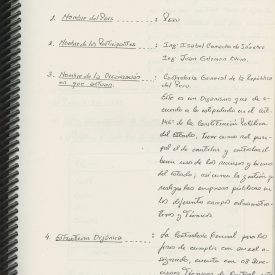 1. Nombre del País : Perú
2. Nombre de los Participantes : Ing. Isabel de Sánchez
Ing. Juan
3. Nombre de la Organización : Contraloría General de la República
en que actúan. del Perú.
Este es un Organismo que de a-
cuerdo a lo estipulado en el art.
146° de la Constitución Política
del Estado, tiene como rol prin-
cipal el de cautelar y controlar el
buen uso de los recursos y bienes
del estado; así como la gestión que
realizan las empresas públicas en
los diferentes campos administra-
tivos y Técnicos.
4. Estructura Orgánica : La Contraloría General para los
fines de cumplir con su rol a-
signado, cuenta con 08 Direc-
ciones Técnicas de Control